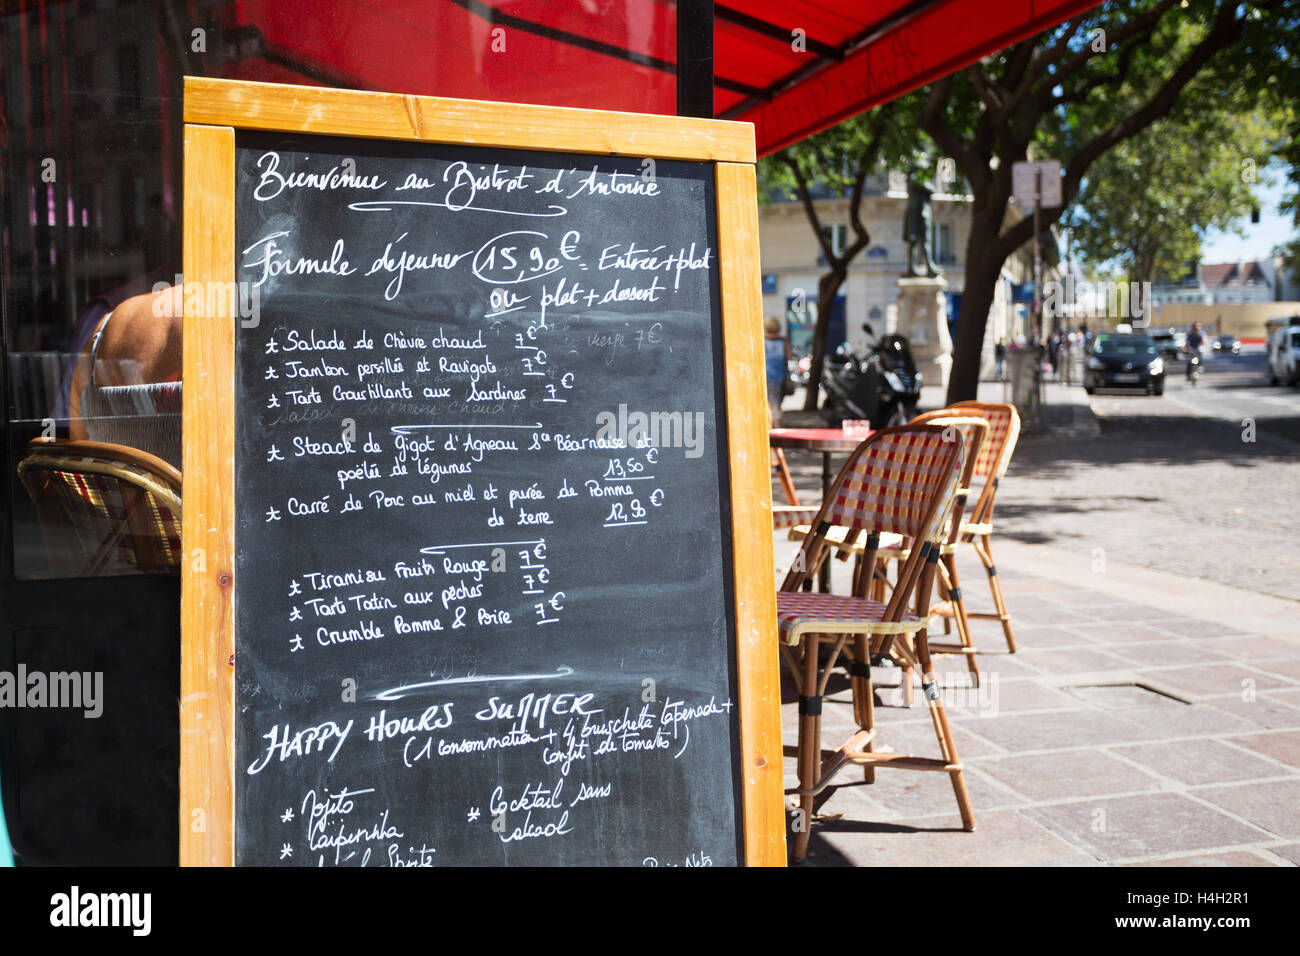 Bienvenue au Bistrot d'Antoine
Formule déjeuner 15,90€ = Entrée+plat
ou plat+dessert!
* Salade de Chèvre chaud 7€
* Jambon persillés et Ravigote 7€
* Tarte Croustillante aux Sardines 7€
* Steack de Gigot d'Agneau Sce Béarnaise et
poêlée de légumes 13,50€
* Carré de Porc au miel et purée de Pomme
de terre 12,90€
* Tiramisu Fruits Rouge 7€
* Tarte Tatin aux pêches 7€
* Crumble Pomme & Poire 7€
HAPPY HOURS SUMMER
(1 consommation + 4 bruschetta tapenade+
Confit de tomate)
* Mojito
* Cocktail sans
alcool
Caipirinha
alamy
Image ID: H4H2R1
www.alamy.com